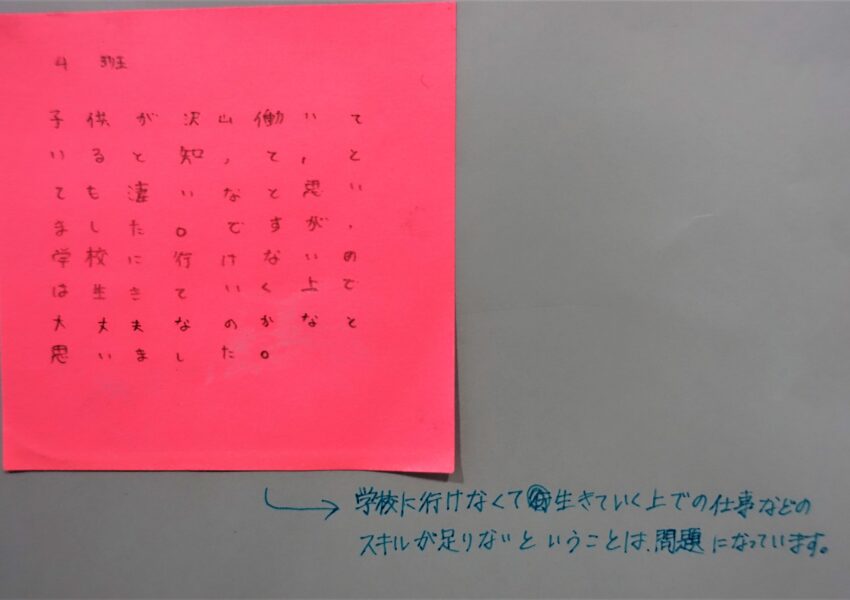 4 班
子供が沢山働いて
いると知って,と
ても凄いなと思い
ました。ですが,
学校に行けないの
は生きていく上で
大丈夫なのかなと
思いました。
学校に行けなくて生きていく上での仕事などの
スキルが足りないということは、問題になっています。